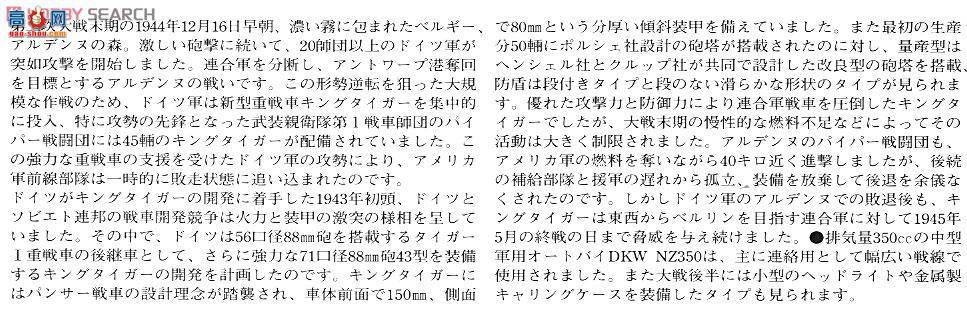 HOBBY SEARCH
大戦末期の1944年12月16日早朝、濃い霧に包まれたベルギー、
アルデンヌの森。激しい砲撃に続いて、20師団以上のドイツ軍が
突如攻撃を開始しました。連合軍を分断し、アントワープ港奪回
を目標とするアルデンヌの戦いです。この形勢逆転を狙った大規
模な作戦のため、ドイツ軍は新型重戦車キングタイガーを集中的
に投入、特に攻勢の先鋒となった武装親衛隊第1戦車師団のパイ
パー戦闘団には45輛のキングタイガーが配備されていました。こ
の強力な重戦車の支援を受けたドイツ軍の攻勢により、アメリカ
軍前線部隊は一時的に敗走状態に追い込まれたのです。
ドイツがキングタイガーの開発に着手した1943年初頭、ドイツと
ソビエト連邦の戦車開発競争は火力と装甲の激突の様相を呈して
いました。その中で、ドイツは56口径88mm砲を搭載するタイガー
Ⅰ重戦車の後継車として、さらに強力な71口径88mm砲43型を装備
するキングタイガーの開発を計画したのです。キングタイガーに
はパンサー戦車の設計理念が踏襲され、車体前面で150mm、側面
で80mmという分厚い傾斜装甲を備えていました。また最初の生産
分50輛にポルシェ社設計の砲塔が搭載されたのに対し、量産型は
ヘンシェル社とクルップ社が共同で設計した改良型の砲塔を搭載、
防盾は段付きタイプと段のない滑らかな形状のタイプが見られま
す。優れた攻撃力と防御力により連合軍戦車を圧倒したキングタ
イガーでしたが、大戦末期の慢性的な燃料不足などによってその
活動は大きく制限されました。アルデンヌのパイパー戦闘団も、
アメリカ軍の燃料を奪いながら40キロ近く進撃しましたが、後続
の補給部隊と援軍の遅れから孤立、装備を放棄して後退を余儀な
くされたのです。しかしドイツ軍のアルデンヌでの敗退後も、キ
ングタイガーは東西からベルリンを目指す連合軍に対して1945年
5月の終戦の日まで脅威を与え続けました。●排気量350ccの中型
軍用オートバイDKW NZ350は、主に連絡用として幅広い戦線で
使用されました。また大戦後半には小型のヘッドライトや金属製
キャリングケースを装備したタイプも見られます。